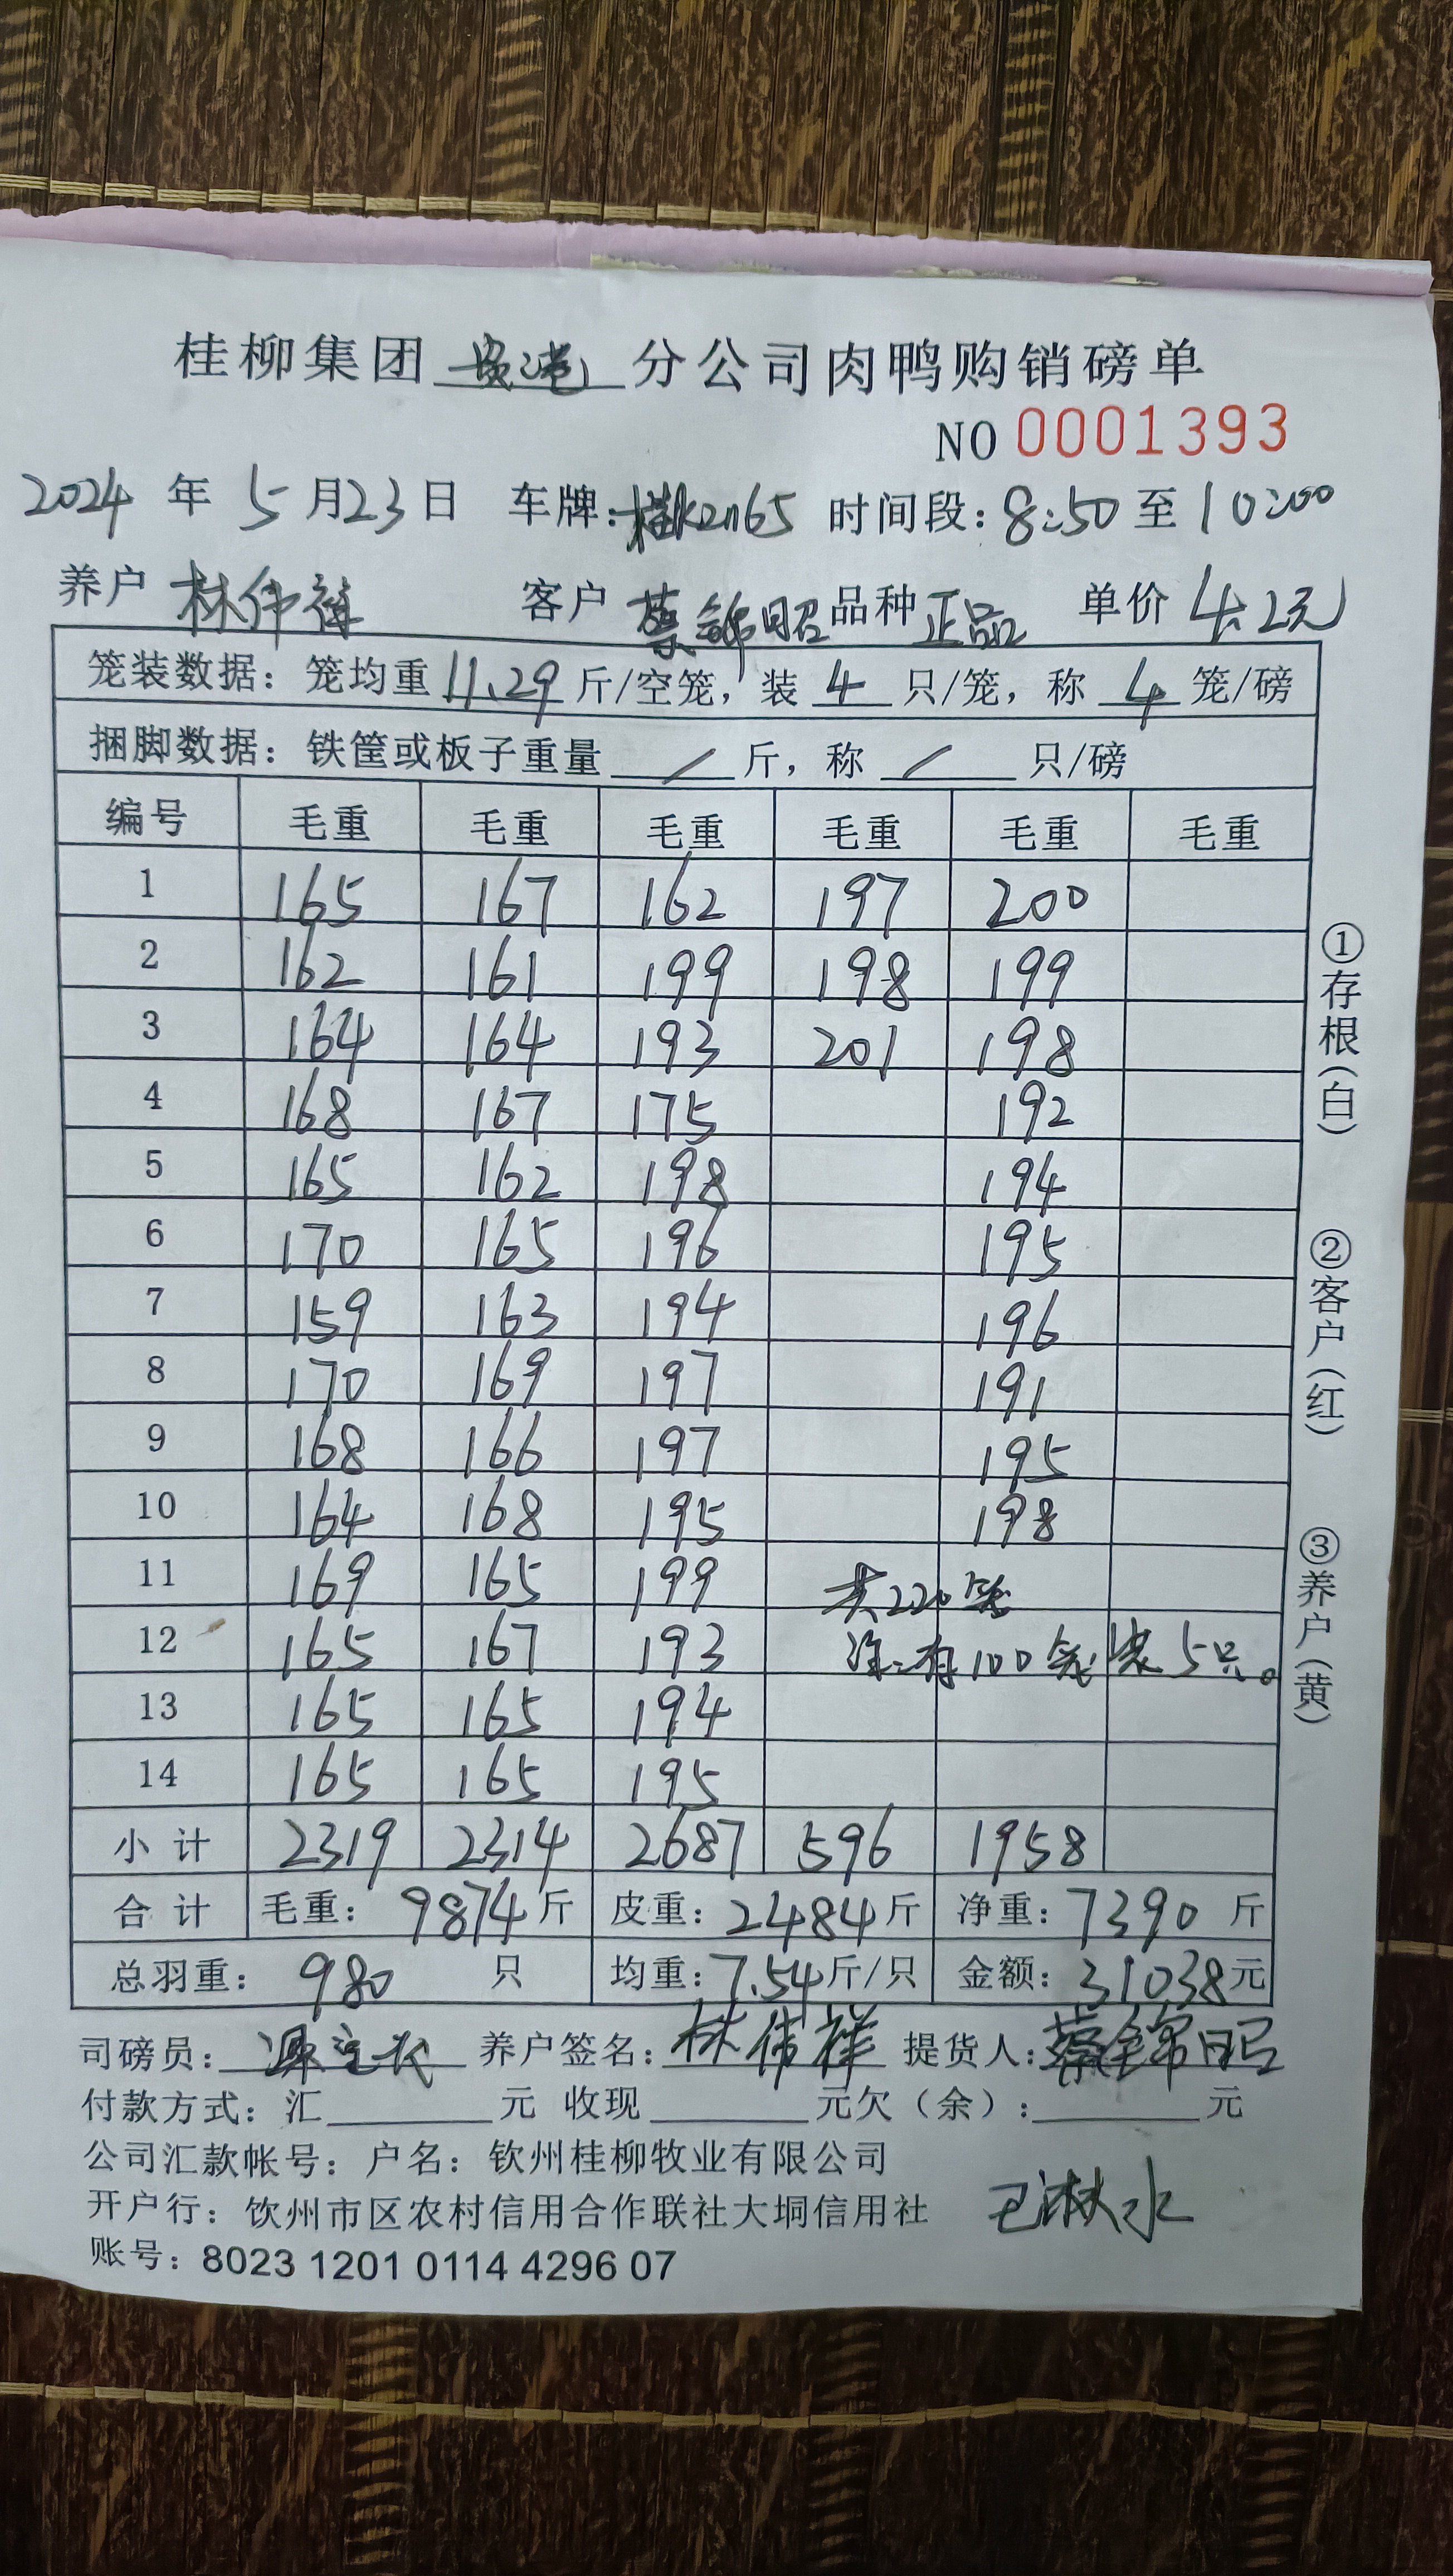 桂柳集团 贵港 分公司肉鸭购销磅单
NO 0001393
2024 年 5 月 23 日 车牌: 桂K2n65 时间段: 8:50 至 10:00
养户 林伟祥 客户 蔡锦昭 品种 正品 单价 4.2元
笼装数据: 笼均重 11.29 斤/空笼, 装 4 只/笼, 称 4 笼/磅
捆脚数据: 铁筐或板子重量 / 斤, 称 / 只/磅
编号 毛重 毛重 毛重 毛重 毛重 毛重
1 165 167 162 197 200
2 162 161 199 198 199
3 164 164 193 201 198
4 168 167 175 192
5 165 162 198 194
6 170 165 196 195
7 159 163 194 196
8 170 169 197 191
9 168 166 197 195
10 164 168 195 198
11 169 165 199 共220笼
12 165 167 193 注:有100笼装5只。
13 165 165 194
14 165 165 195
小计 2319 2314 2687 596 1958
合计 毛重: 9874 斤 皮重: 2484 斤 净重: 7390 斤
总羽重: 980 只 均重: 7.54 斤/只 金额: 31038 元
司磅员: 养户签名: 林伟祥 提货人: 蔡锦昭
付款方式: 汇 元 收现 元欠(余): 元
公司汇款帐号: 户名: 钦州桂柳牧业有限公司
开户行: 钦州市区农村信用合作联社大垌信用社
账号: 8023 1201 0114 4296 07
①存根(白) ②客户(红) ③养户(黄)